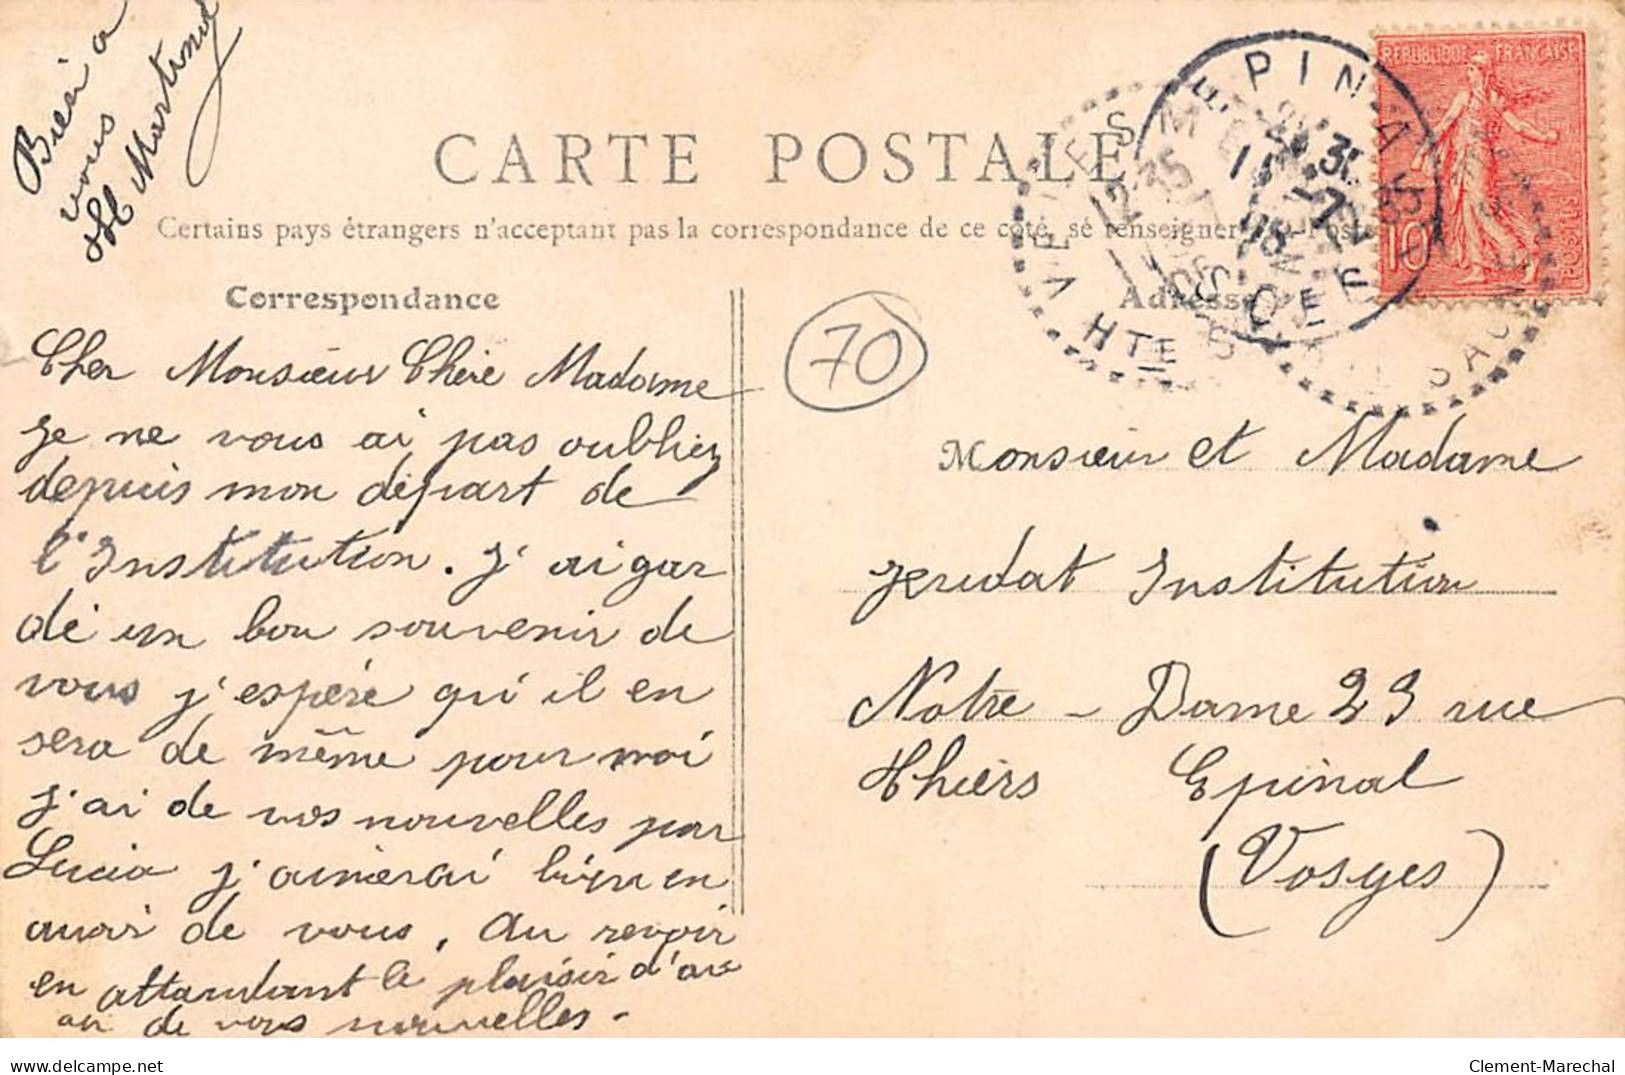 Bien a
vous
Martinot
CARTE POSTALE
Certains pays étrangers n'acceptant pas la correspondance de ce coté, se renseigner à la Poste
Correspondance
Adresse
Cher Monsieur Chère Madame
je ne vous ai pas oubliez
depuis mon départ de
l'Institution. J'ai gar
dé un bon souvenir de
vous j'espère qu'il en
sera de même pour moi
j'ai de vos nouvelles par
Lucia j'aimerai bien en
avoir de vous. Au revoir
en attandant le plaisir d'av
oir de vous nouvelles.
70
EPINAL
VOSGES
12 35
HTE SAONE
REPUBLIQUE FRANÇAISE
10
POSTES
Monsieur et Madame
Jeridat Institution
Notre-Dame 23 rue
Thiers Epinal
(Vosges)
delcampe.net
Clement-Marechal